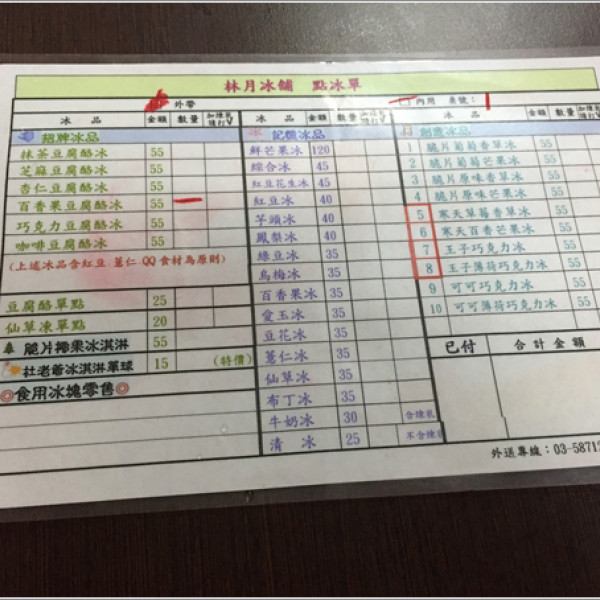 林月冰舖 點冰單
外帶
內用 桌號：
冰品 金額 數量
招牌冰品
抹茶豆腐酪冰 55
芝麻豆腐酪冰 55
杏仁豆腐酪冰 55
百香果豆腐酪冰 55
巧克力豆腐酪冰 55
咖啡豆腐酪冰 55
(上述冰品含紅豆.薏仁.QQ食材為原則)
豆腐酪單點 25
仙草凍單點 20
脆片椰果冰淇淋 55
杜老爺冰淇淋單球 15 (特價)
◎食用冰塊零售◎
冰品 金額 數量
記憶冰品
鮮芒果冰 120
綜合冰 45
紅豆花生冰 45
紅豆冰 40
芋頭冰 40
鳳梨冰 40
綠豆冰 35
烏梅冰 35
百香果冰 35
愛玉冰 35
豆花冰 35
薏仁冰 35
仙草冰 35
布丁冰 35
牛奶冰 30 含煉乳
清冰 25 不含煉乳
冰品 金額 數量
創意冰品
1 脆片葡萄香草冰 55
2 脆片葡萄芒果冰 55
3 脆片原味香草冰 55
4 脆片原味芒果冰 55
5 寒天草莓香草冰 55
6 寒天百香芒果冰 55
7 王子巧克力冰 55
8 王子薄荷巧克力冰 55
9 可可巧克力冰 55
10 可可薄荷巧克力冰 55
已付 合計金額
外送專線：03-58712